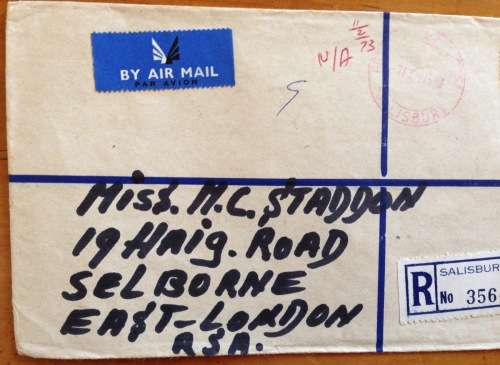 BY AIR MAIL
PAR AVION
N/A 11/2/73
MISS. M.C. STADDON
19 HAIG. ROAD
SELBORNE
EAST-LONDON
RSA.
R
SALISBUR
No 356